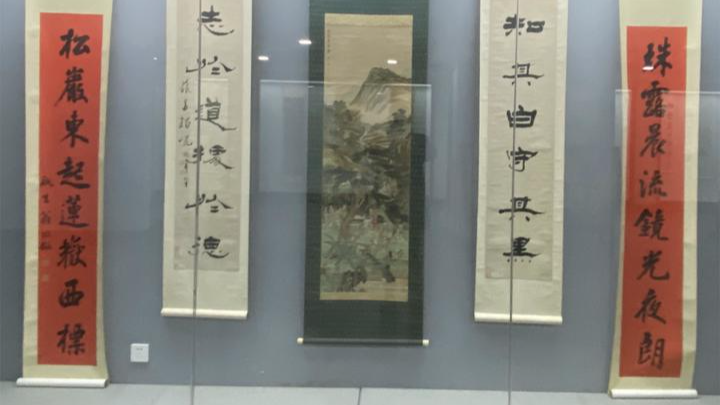 珠露晨流鏡光夜朗
知其白守其黑
志於道據於德
松巖東起蓮嶽西標